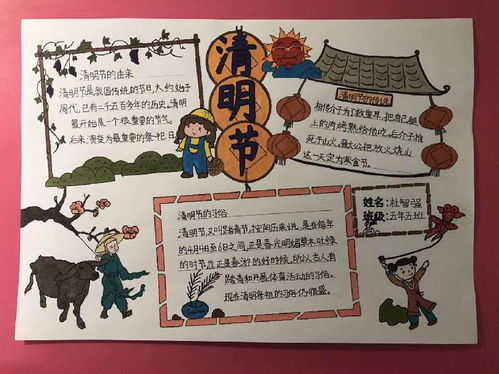 清明节
清明节的由来
清明节是我国传统的节日,大约始于
周代,已有二千五百多年的历史。清明
最开始是一个很重要的节气,
后来演变为最重要的祭祀日
清明节的传说
相传介子为了救重耳,把自己腿
上的肉烤熟给他吃。后介子推
死于山火。晋文公把放火烧山
这一天定为寒食节。
姓名:杜智强
班级:五年五班
清明节的习俗
清明节,又叫踏青节,按阳历来说,是在每年
的4月4日至6日之间,正是春光明媚草木吐绿
的时节,也正是春游的好时候,所以古人有
踏青和开展体育活动的习俗。
现在清明祭祖的习俗仍很盛。